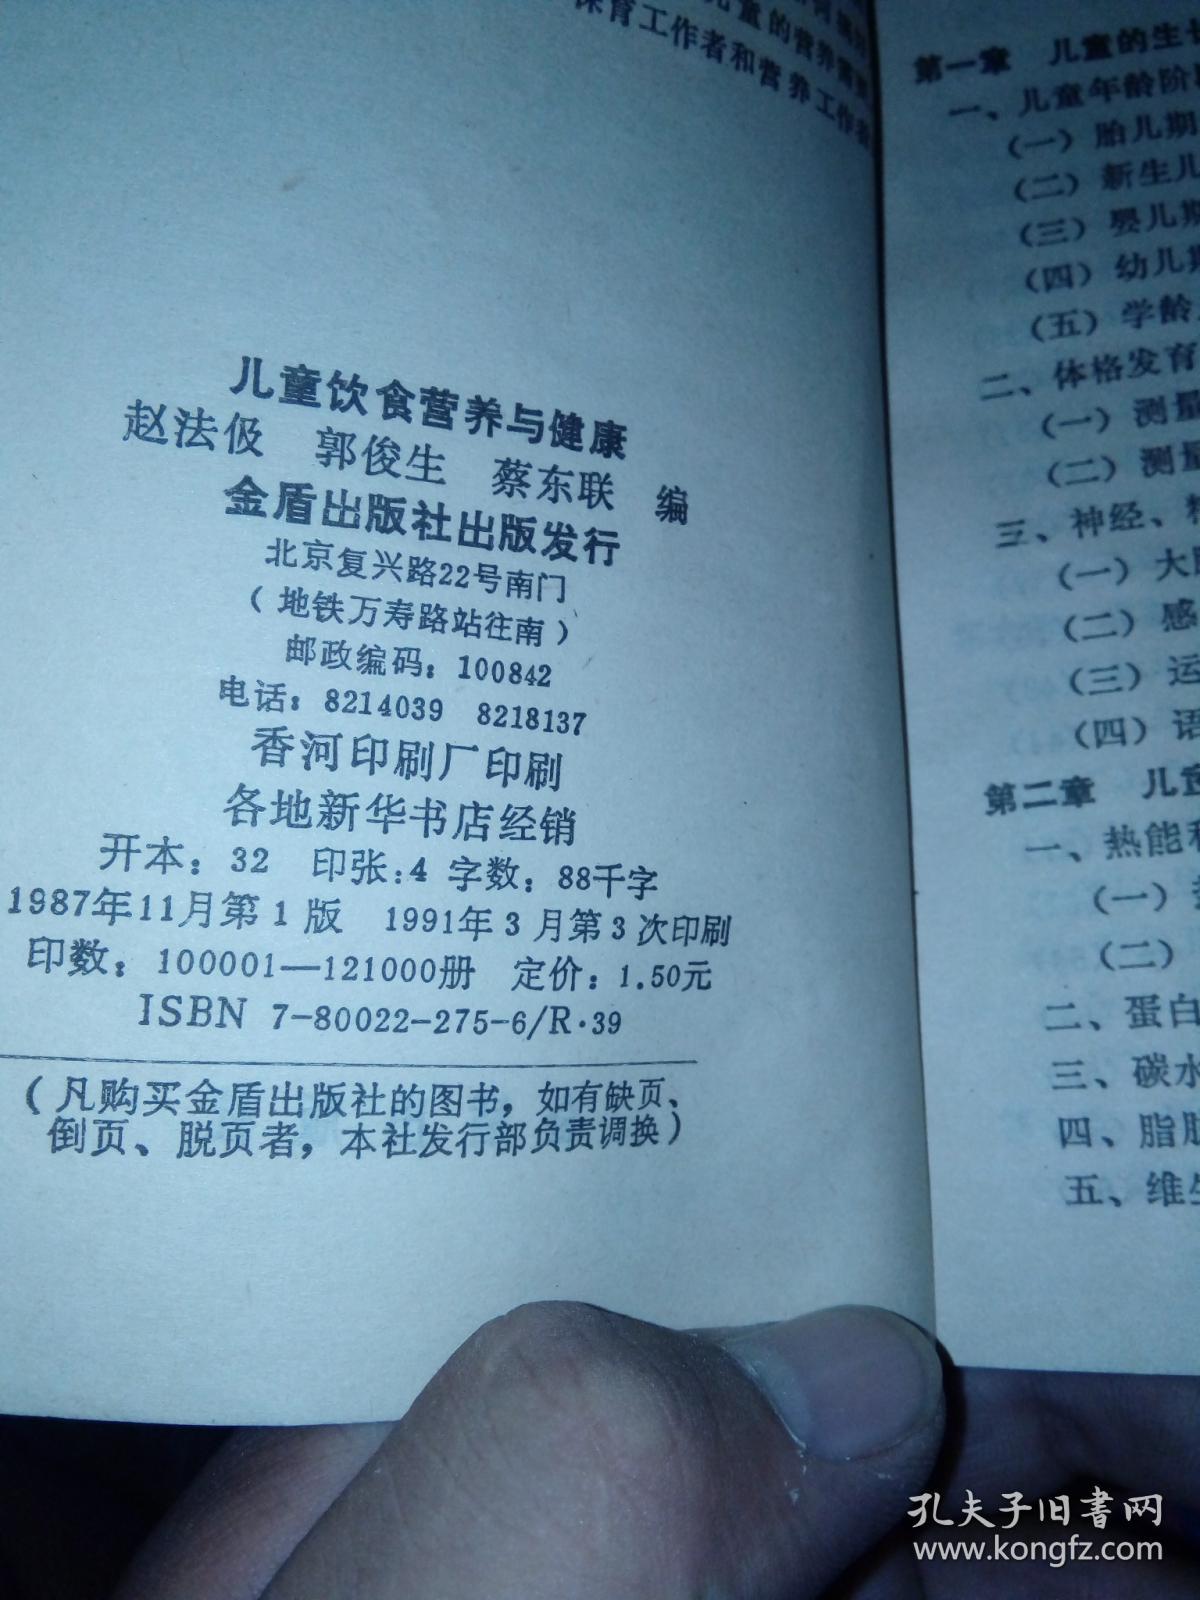 儿童的营养需要
保育工作者和营养工作者
儿童饮食营养与健康
赵法伋 郭俊生 蔡东联 编
金盾出版社出版发行
北京复兴路22号南门
(地铁万寿路站往南)
邮政编码：100842
电话：8214039 8218137
香河印刷厂印刷
各地新华书店经销
开本：32 印张：4 字数：88千字
1987年11月第1版 1991年3月第3次印刷
印数：100001—121000册 定价：1.50元
ISBN 7-80022-275-6/R·39
(凡购买金盾出版社的图书，如有缺页、
倒页、脱页者，本社发行部负责调换)
第一章 儿童的生长
一、儿童年龄阶
(一)胎儿期
(二)新生儿
(三)婴儿期
(四)幼儿期
(五)学龄
二、体格发育
(一)测量
(二)测量
三、神经、
(一)大
(二)感
(三)运
(四)语
第二章 儿童
一、热能
(一)
(二)
二、蛋白
三、碳水
四、脂
五、维生
孔夫子旧书网
www.kongfz.com